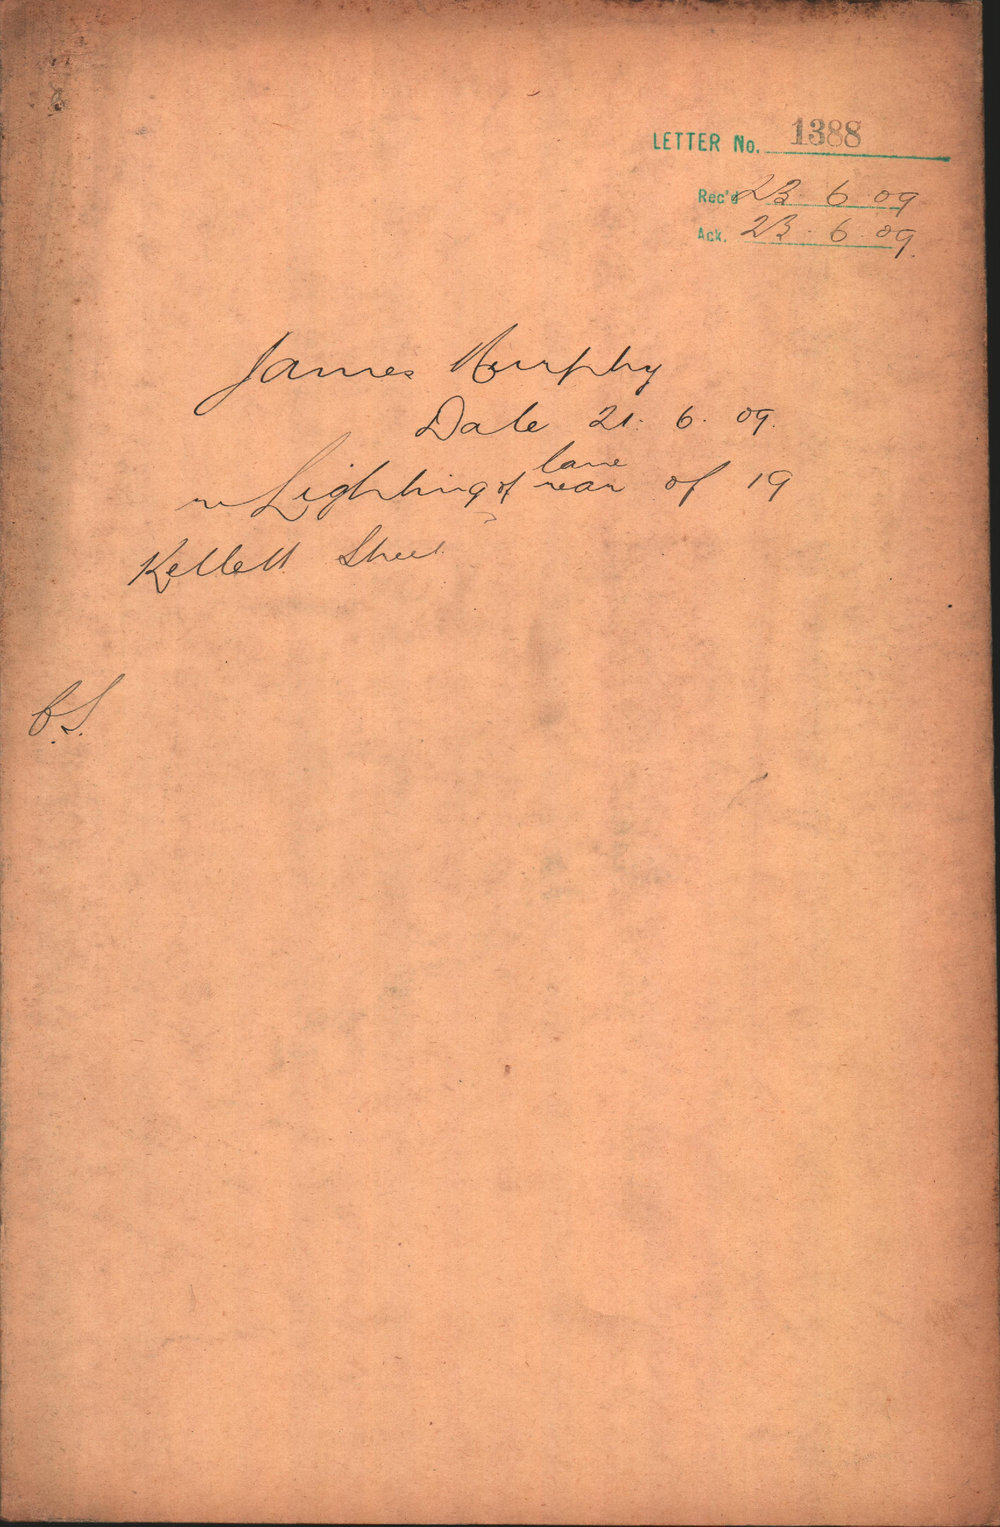 LETTER No. 1388
Rec'd 23. 6. 09
Ack. 23. 6. 09.
James Murphy
Date 21. 6. 09.
lane
re Lighting of rear of 19
Kellett Street
C.S.